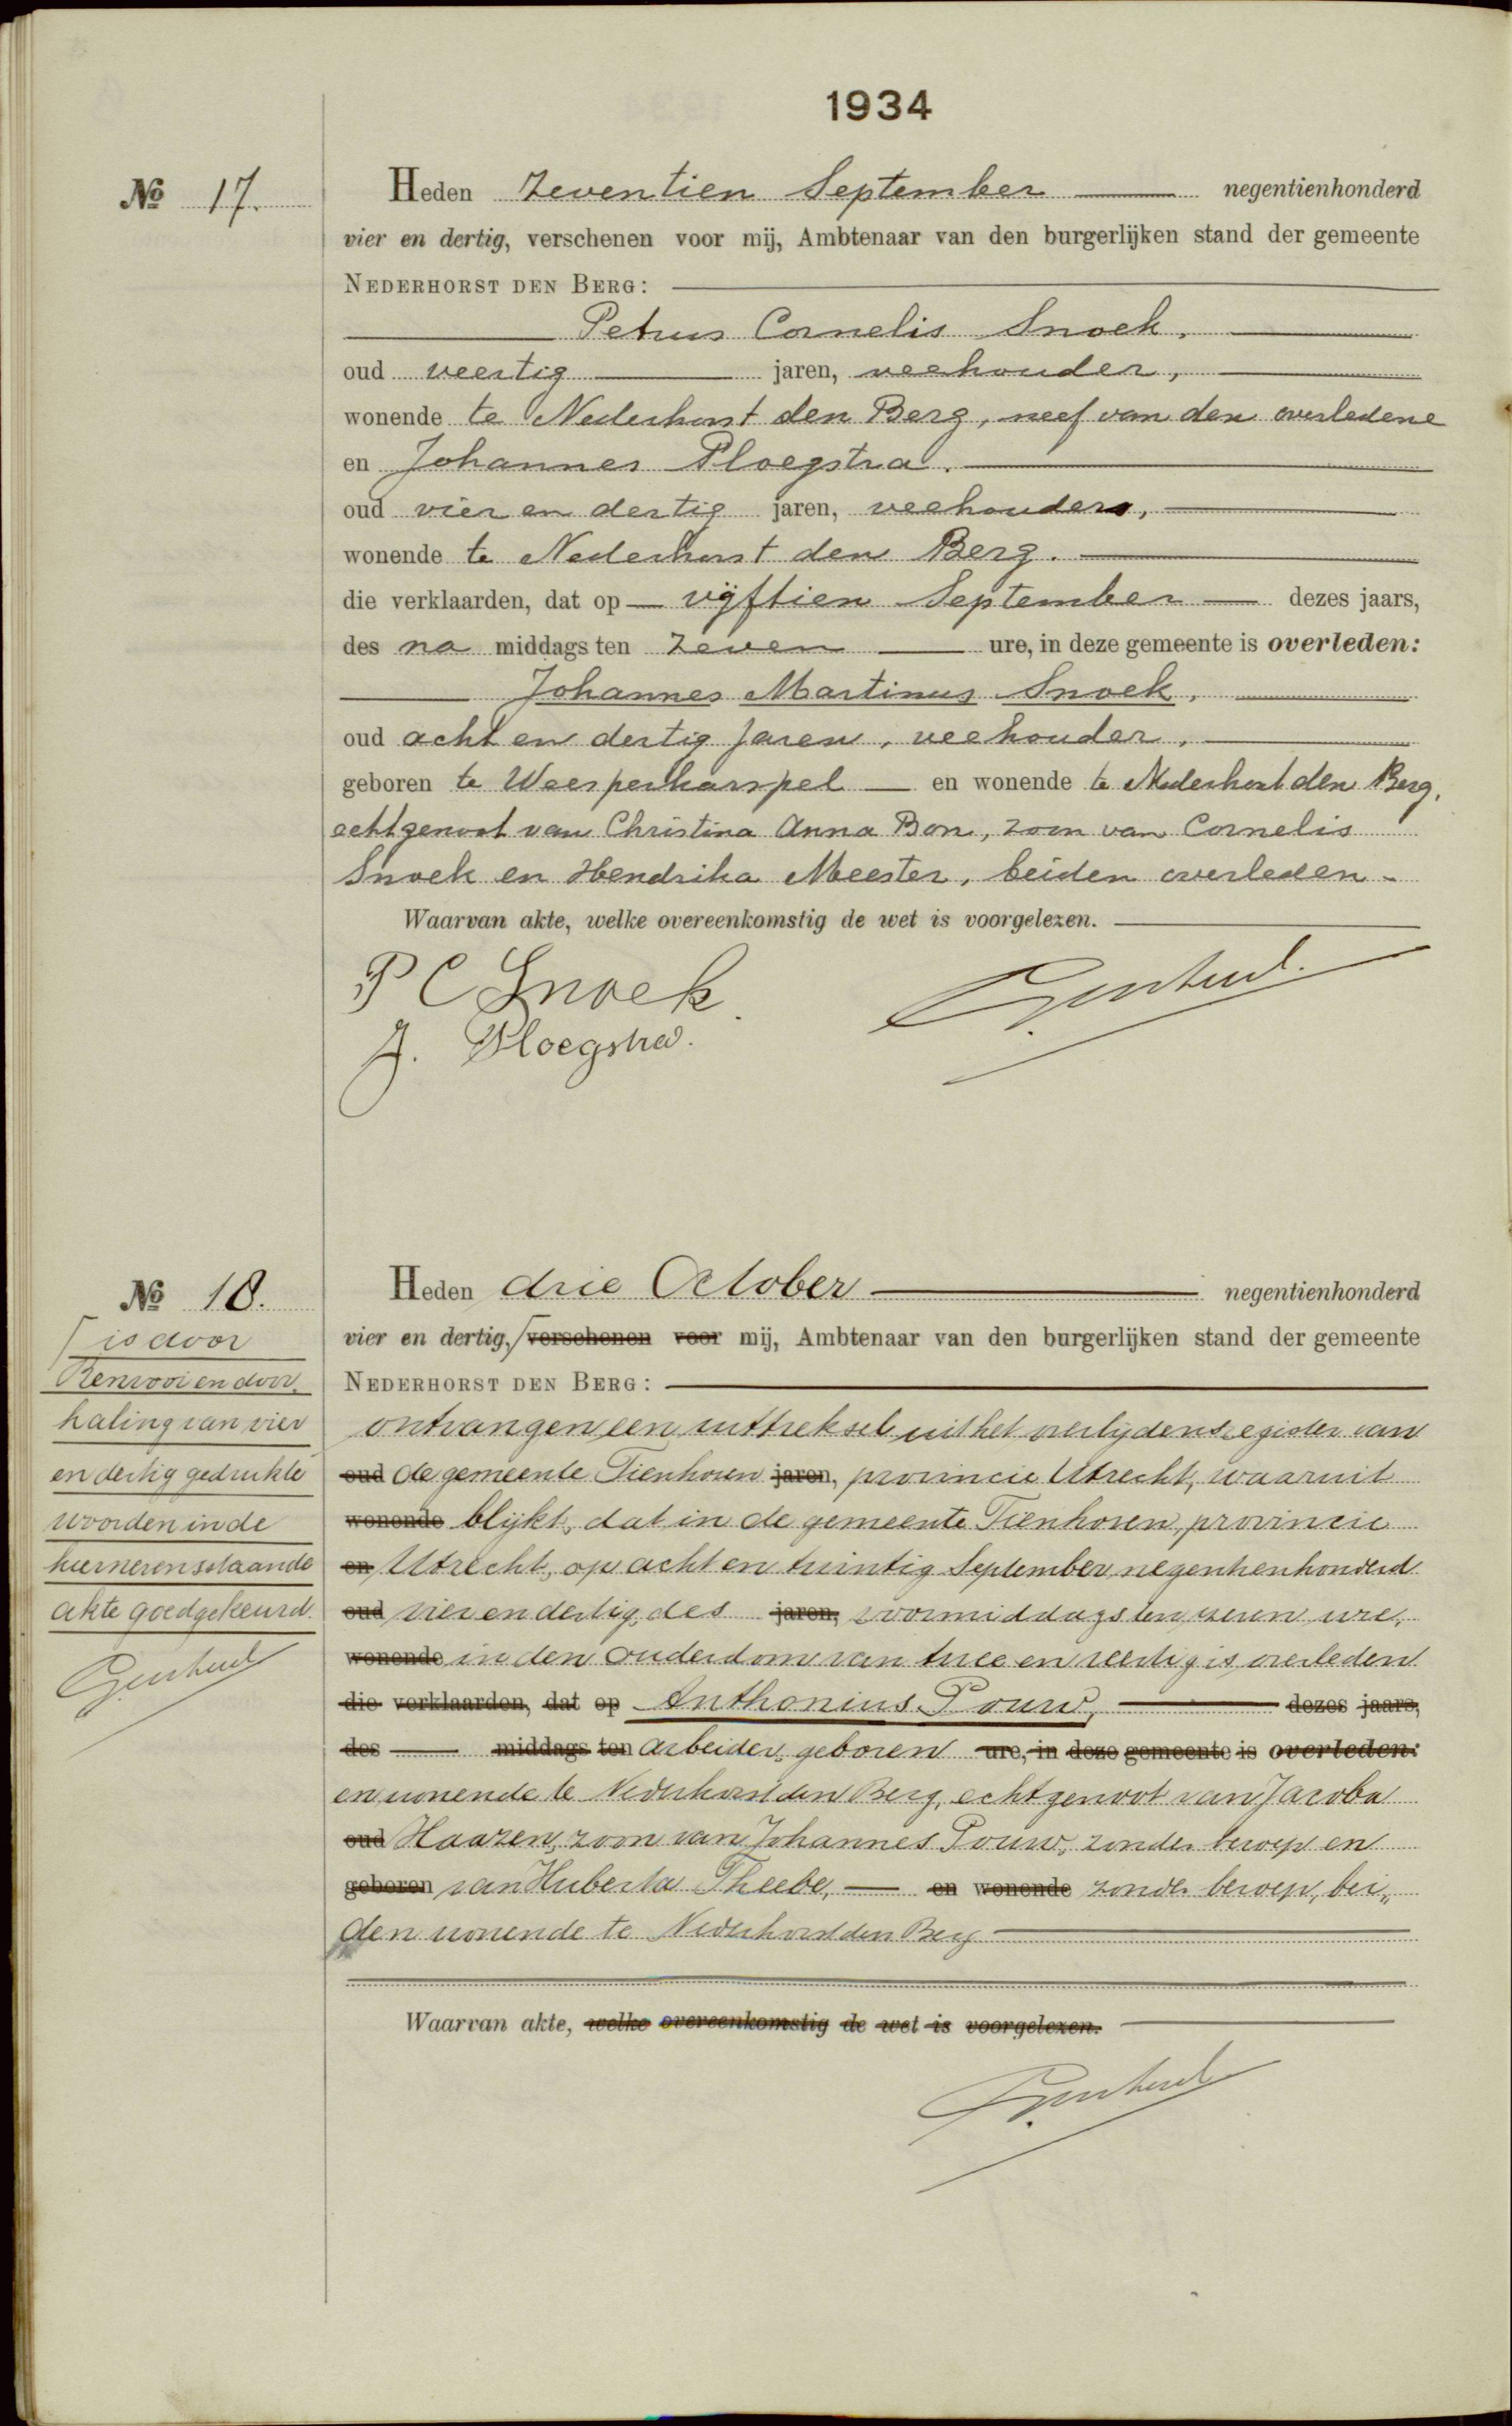 1934
No 17.
Heden zeventien September negentienhonderd
vier en dertig, verschenen voor mij, Ambtenaar van den burgerlijken stand der gemeente
NEDERHORST DEN BERG:
Petrus Cornelis Snoek,
oud veertig jaren, veehouder,
wonende te Nederhorst den Berg, neef van den overledene
en Johannes Ploegstra.
oud vier en dertig jaren, veehouder,
wonende te Nederhorst den Berg.
die verklaarden, dat op vijftien September dezes jaars,
des na middags ten zeven ure, in deze gemeente is overleden:
Johannes Martinus Snoek,
oud acht en dertig jaren, veehouder,
geboren te Weesperkarspel en wonende te Nederhorst den Berg,
echtgenoot van Christina Anna Bon, zoon van Cornelis
Snoek en Hendrika Meester, beiden overleden.
Waarvan akte, welke overeenkomstig de wet is voorgelezen.
P C Snoek
J. Ploegstra.
No 18.
Heden drie October negentienhonderd
vier en dertig, verschenen voor mij, Ambtenaar van den burgerlijken stand der gemeente
NEDERHORST DEN BERG:
is door
Renvooi en door
haling van vier
en dertig gedrukte
woorden in de
hiernevenstaande
akte goedgekeurd.
ontvangen een uittreksel uit het overlijdensregister van
oud de gemeente Tienhoven jaren, provincie Utrecht, waaruit
wonende blijkt, dat in de gemeente Tienhoven, provincie
en Utrecht, op acht en twintig September negentienhonderd
oud vier en dertig, des jaren, voormiddags ten zeven ure,
wonende in den ouderdom van twee en veertig is overleden
die verklaarden, dat op Anthonius Pouw, dezes jaars,
des middags ten arbeider, geboren ure, in deze gemeente is overleden:
en wonende te Nederhorst den Berg, echtgenoot van Jacoba
oud Haazen, zoon van Johannes Pouw, zonder beroep en
geboren van Huberta Theebe, en wonende zonder beroep, bei„
den wonende te Nederhorst den Berg
Waarvan akte, welke overeenkomstig de wet is voorgelezen.